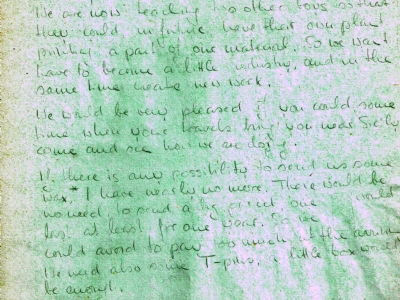 We are now teaching two other boys so that
they could in future have their own plant
printing, a part of one material. So we want
have to become a little industry, and in the
same time create new work.
We would be very pleased if you could some
time when your travels bring you near Sicily
come and see how we are doing.
If there is any possibility to send us some
wax,* I have nearly no more. There would be
no need to send a big pricel, one would
last at least for one year. So we
could avoid to pay so much at the
We need also some T-pins, a little box would
be enough.